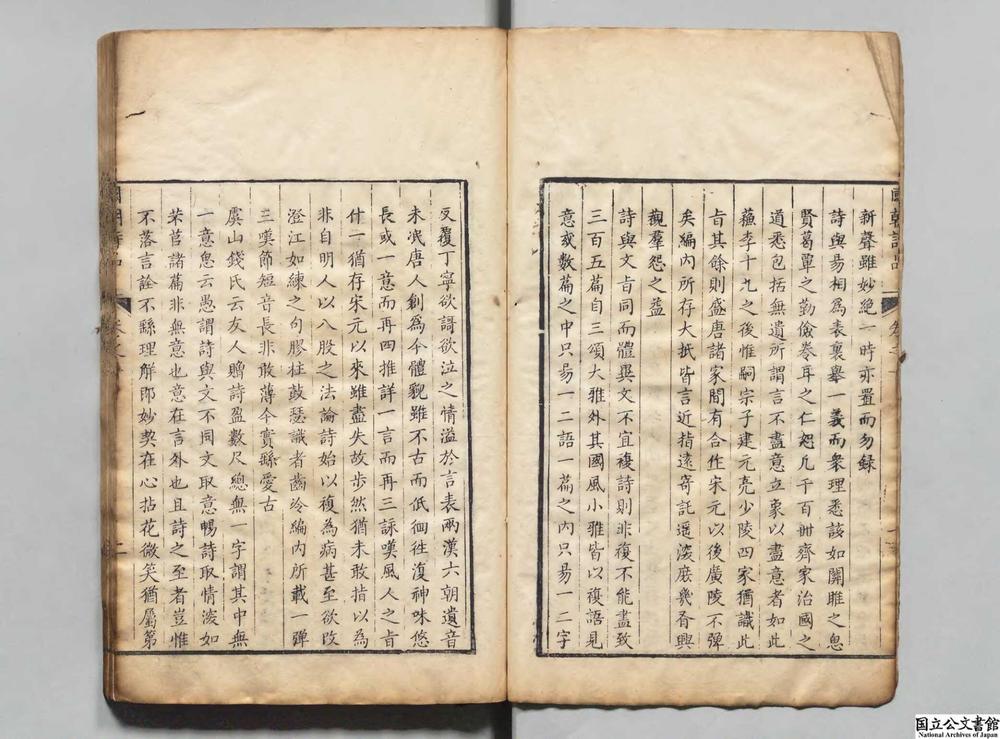 新聲雖妙絶一時亦置而勿録
詩與易相爲表裏舉一義而衆理悉該如關雎之思
賢葛覃之勤儉卷耳之仁恕凡千百世齊家治國之
道悉包括無遺所謂言不盡意立象以盡意者如此
蘇李十九之後惟嗣宗子建元亮少陵四家猶識此
旨其餘則盛唐諸家間有合作宋元以後廣陵不彈
矣編内所存大抵皆言近指遠寄託遥深庶幾有興
觀羣怨之益
詩與文旨同而體異文不宜複詩則非複不能盡致
三百五篇自三頌大雅外其國風小雅皆以複語見
意或數篇之中只易一二語一篇之内只易一二字
反覆丁寧欲謌欲泣之情溢於言表兩漢六朝遺音
未泯唐人創爲今體貌雖不古而低徊往復神味悠
長或一意而再四推詳一言而再三詠嘆風人之旨
什一猶存宋元以來雖盡失故步然猶未敢指以為
非自明人以八股之法論詩始以複為病甚至欲改
澄江如練之句膠柱鼓瑟識者齒冷編内所載一彈
三嘆節短音長非敢薄今實繇愛古
虞山錢氏云友人贈詩盈數尺總無一字謂其中無
一意思云愚謂詩與文不同文取意暢詩取情深如
芣苢諸篇非無意也意在言外也且詩之至者豈惟
不落言詮不繇理解即妙契在心拈花微笑猶屬第
國朝詩品
卷之
二
国立公文書館
National Archives of Japan